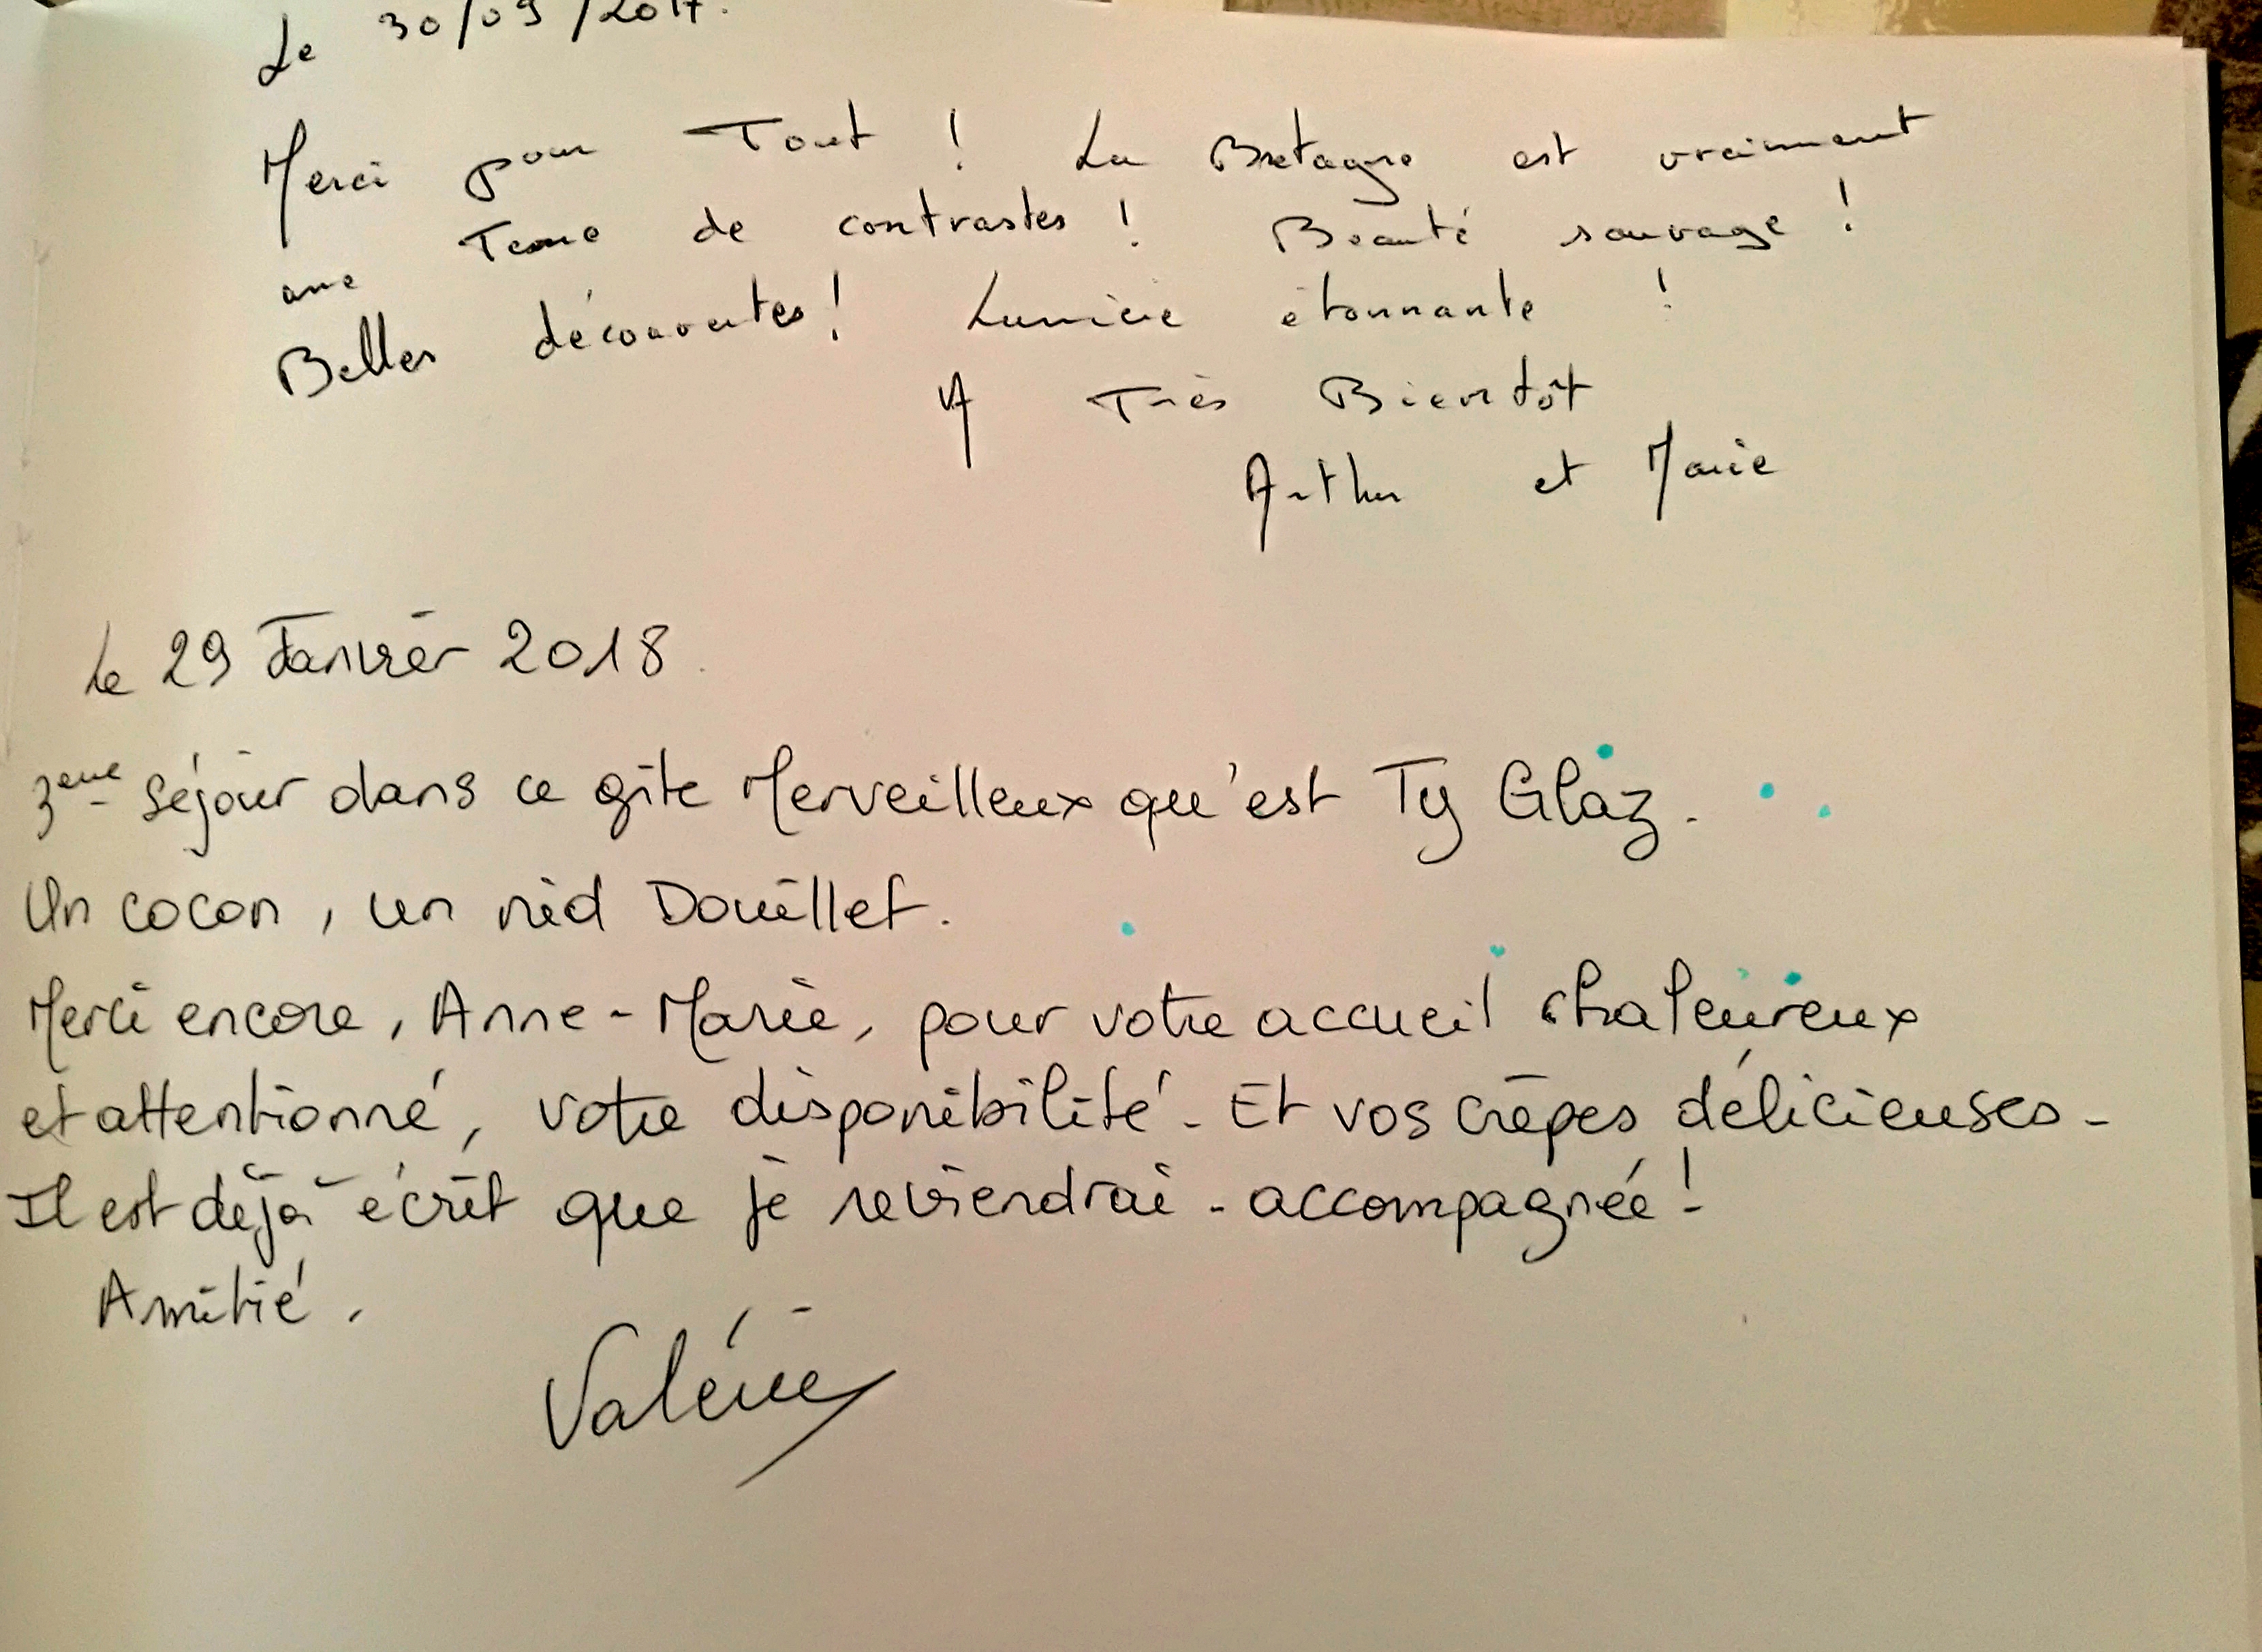 Le 30/09/2017.
Merci pour Tout ! La Bretagne est vraiment
une Terre de contrastes ! Beauté sauvage !
Belles découvertes ! Lumière étonnante !
A Très Bientôt
Arthur et Marie
Le 29 Janvier 2018.
3eme séjour dans ce gîte Merveilleux qu'est Ty Glaz.
Un cocon, un nid Douillet.
Merci encore, Anne-Marie, pour votre accueil chaleureux
et attentionné, votre disponibilité. Et vos crêpes délicieuses.
Il est déjà écrit que je reviendrai - accompagnée !
Amitié.
Valérie